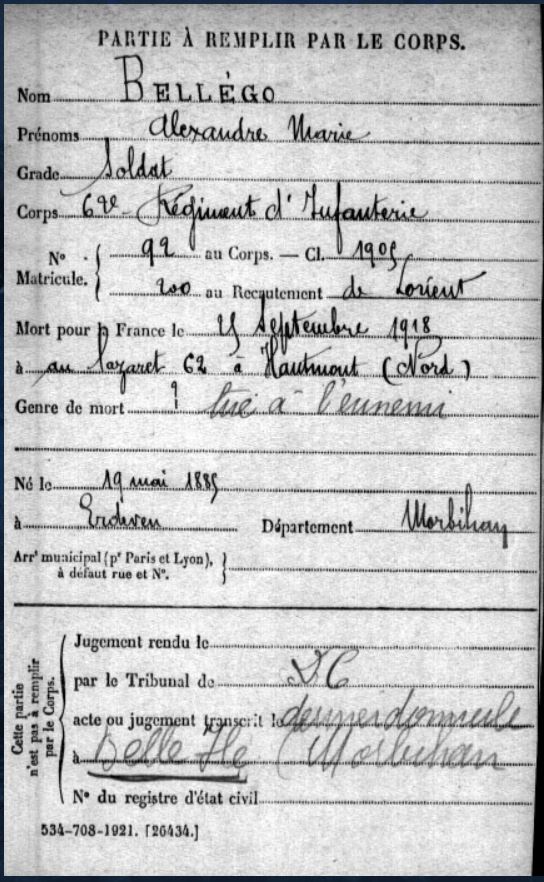 PARTIE À REMPLIR PAR LE CORPS.
Nom BELLÉGO
Prénoms Alexandre Marie
Grade Soldat
Corps 62e Régiment d'Infanterie
N° Matricule. { 92 au Corps. — Cl. 1905
200 au Recrutement de Lorient
Mort pour la France le 25 Septembre 1918
à au Lazaret 62 à Hautmont (Nord)
Genre de mort ? tué à l'ennemi
Né le 19 mai 1885
à Erdeven Département Morbihan
Arrt municipal (pr Paris et Lyon),
à défaut rue et N°.
Cette partie
n'est pas à remplir
par le Corps.
Jugement rendu le
par le Tribunal de DC
acte ou jugement transcrit le dernier domicile
à Belle Ile (Morbihan
N° du registre d'état civil
534-708-1921. [26434.]